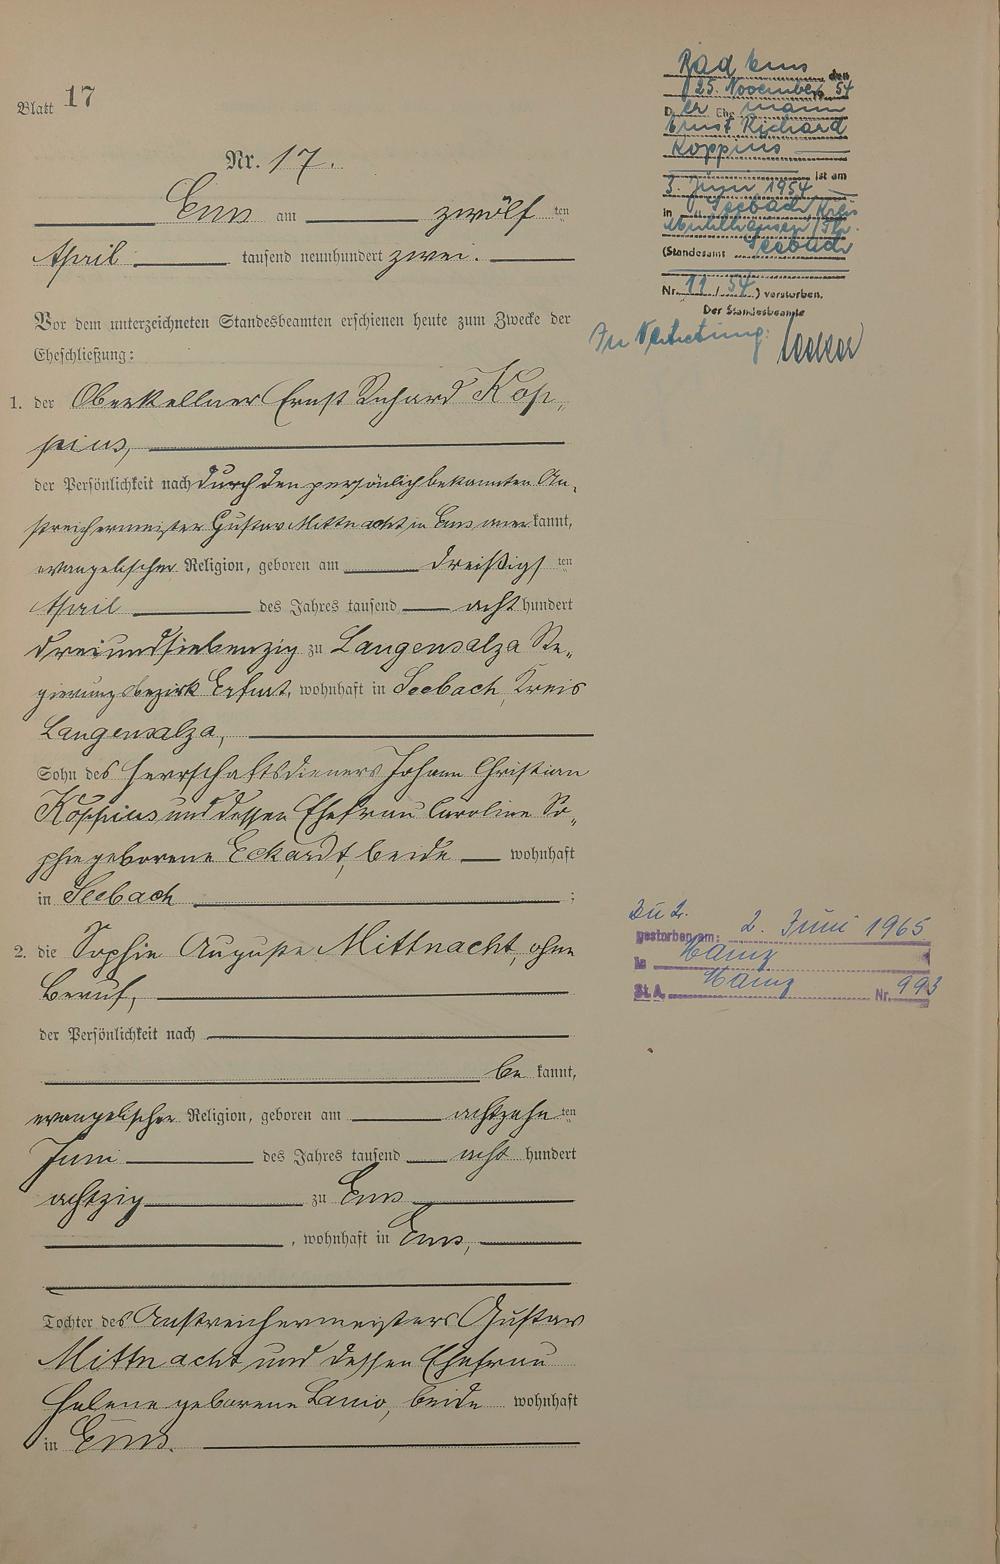 Blatt 17
Nr. 17.
Ems am zwölf ten
April tausend neunhundert zwei.
Vor dem unterzeichneten Standesbeamten erschienen heute zum Zwecke der
Eheschließung:
1. der Oberkellner Ernst Richard Köp„
pius,
der Persönlichkeit nach durch den persönlich bekannten An„
streichermeister Gustav Mittnacht in Ems aner kannt,
evangelischer Religion, geboren am dreißigs ten
April des Jahres tausend acht hundert
dreiundsiebenzig zu Langensalza Re„
gierungsbezirk Erfurt, wohnhaft in Seebach, Kreis
Langensalza,
Sohn des Herrschaftsdieners Johann Christian
Köppius und dessen Ehefrau Caroline So„
phie geborene Eckardt, beide wohnhaft
in Seebach ;
2. die Sophie Auguste Mittnacht, ohne
Beruf,
der Persönlichkeit nach
be kannt,
evangelischer Religion, geboren am achtzehn ten
Juni des Jahres tausend acht hundert
achtzig zu Ems
, wohnhaft in Ems,
Tochter des Anstreichermeisters Gustav
Mittnacht und dessen Ehefrau
Helene geborene Lanio, beide wohnhaft
in Ems.
Bad Ems den
25. November 19 54
D er Ehe mann
Ernst Richard
Köppius
ist am
3. Juni 1954
in Seebach, Kreis
Mühlhausen/Th.
(Standesamt Seebach
Nr. 11 / 54 ) verstorben.
Der Standesbeamte
In Vertretung:
Zu 2.
gestorben am: 2. Juni 1965
in Mainz
St. A. Mainz Nr. 993